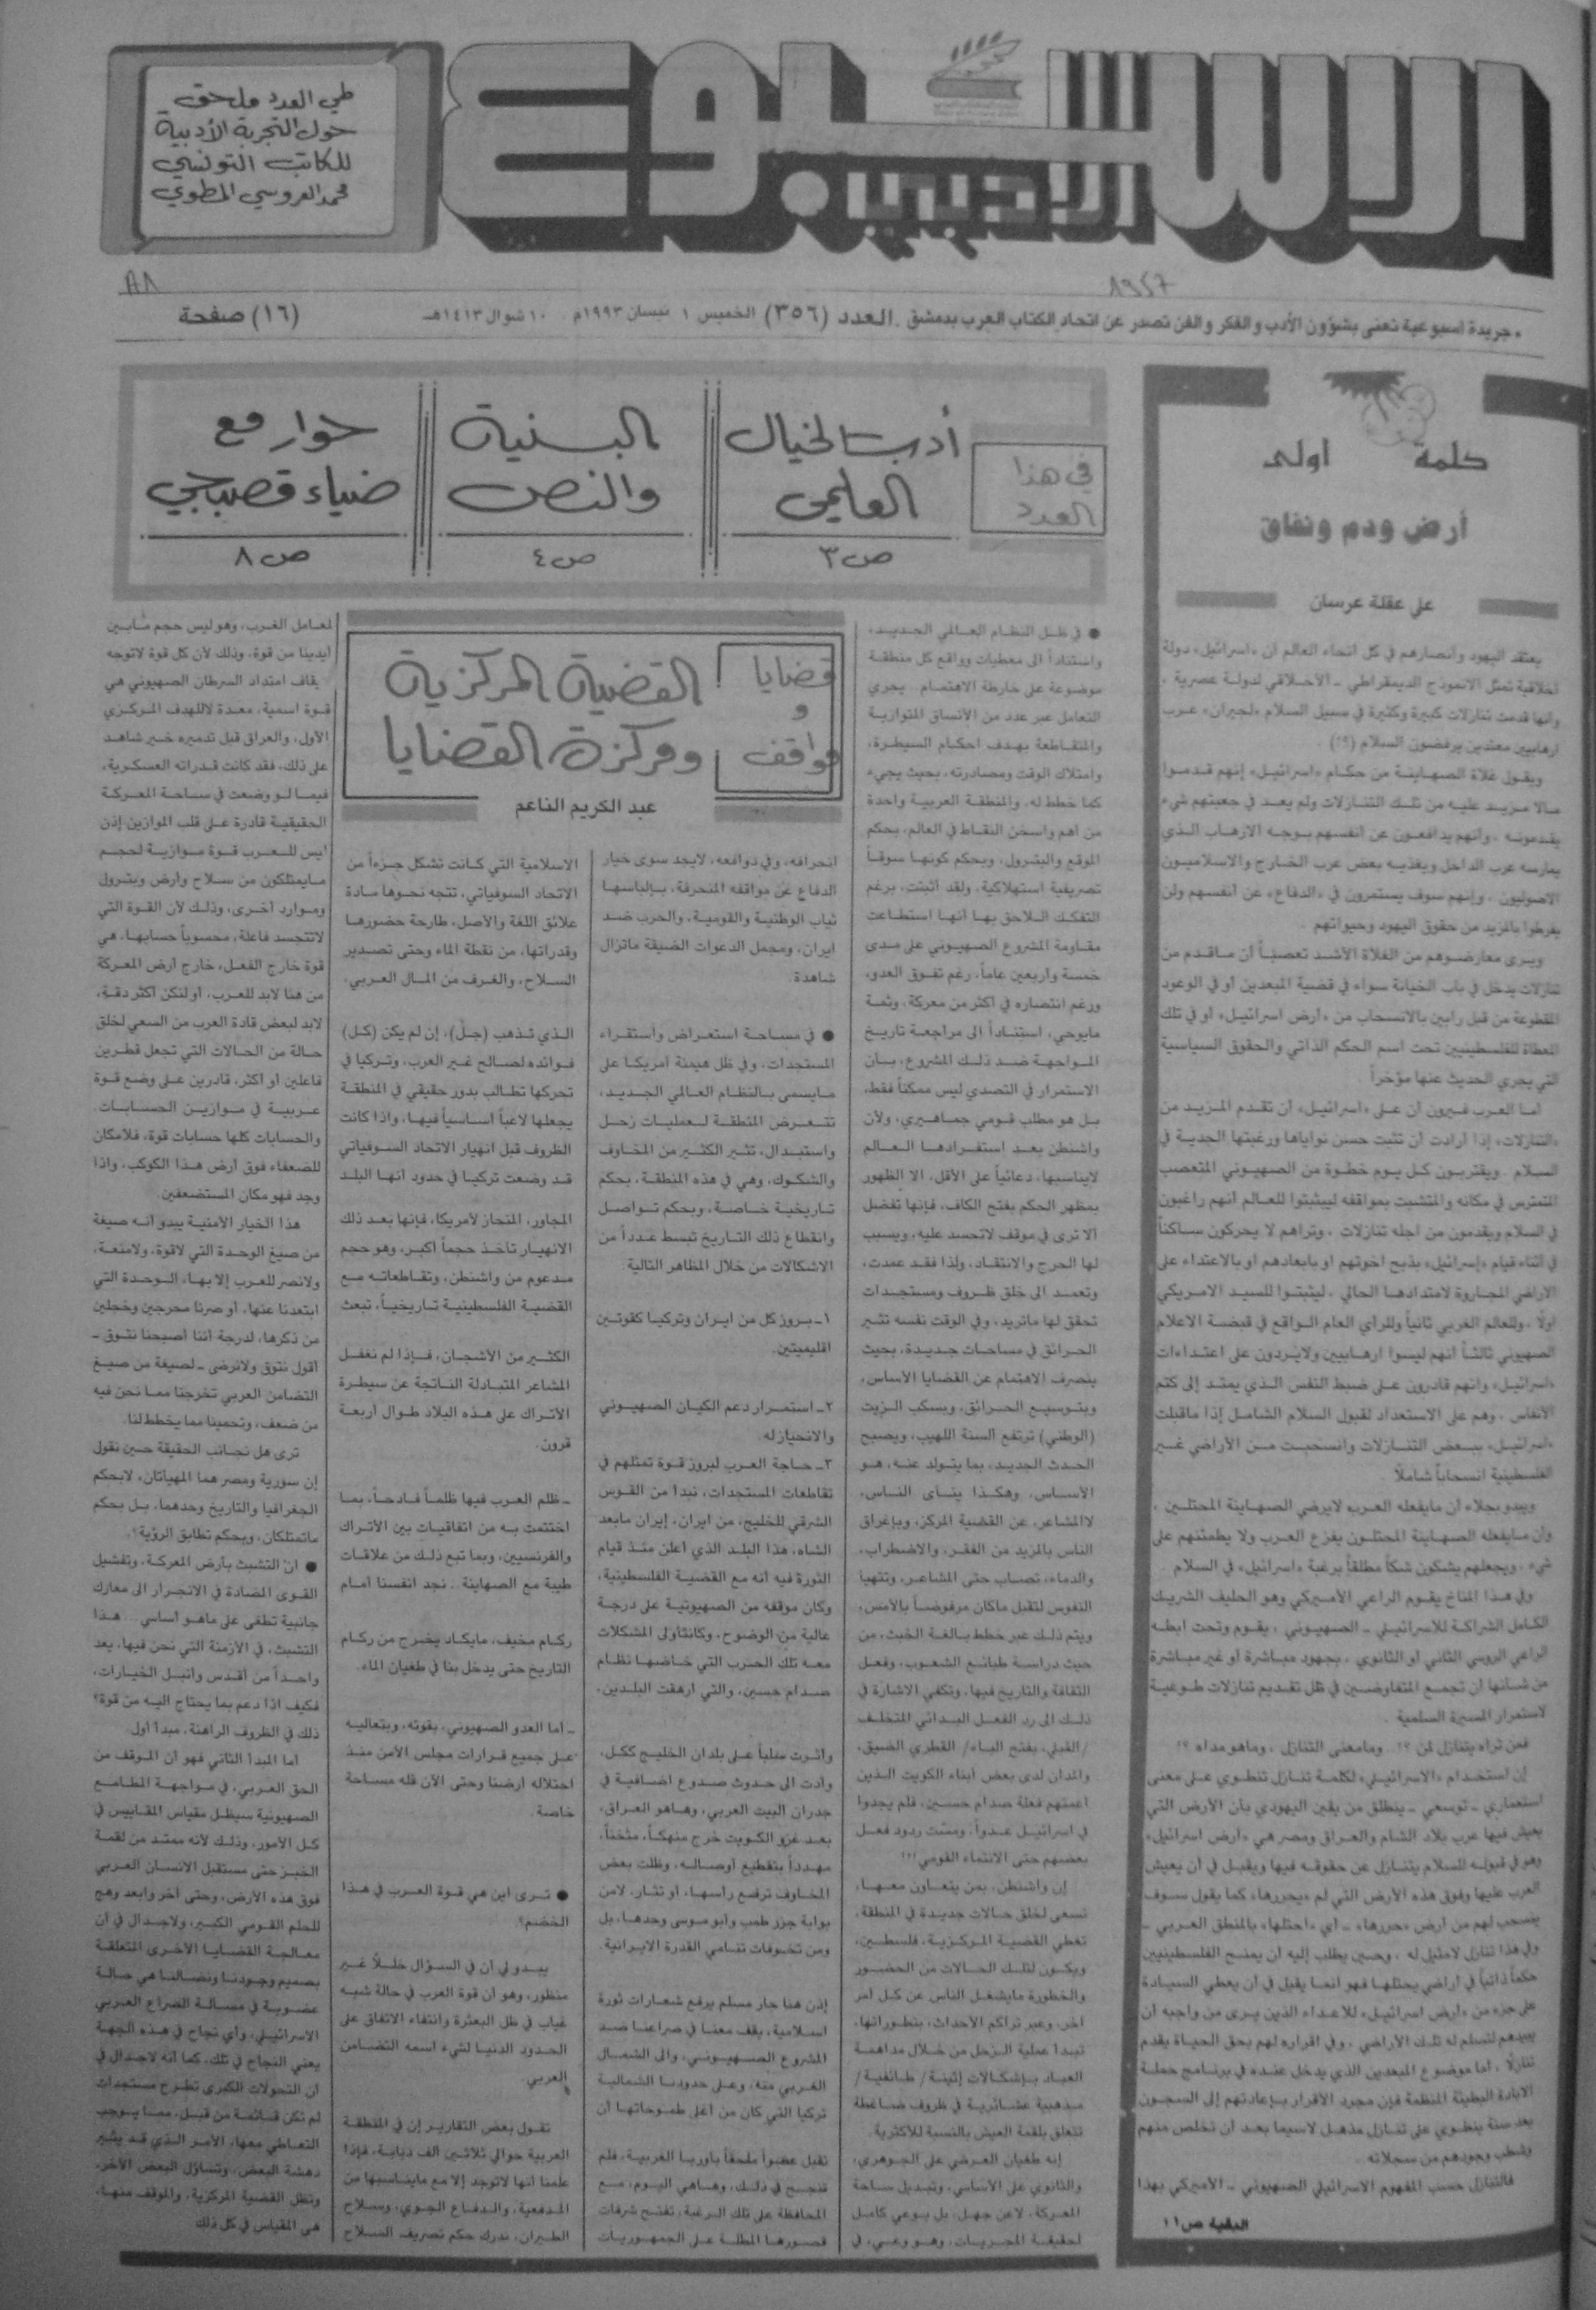 الأسبوع الأدبي
طي العدد ملحق
حول التجربة الأدبية
للكاتب التونسي
محمد العروسي المطوي
جريدة اسبوعية تعنى بشؤون الأدب والفكر والفن تصدر عن اتحاد الكتاب العرب بدمشق . العدد (٣٥٦) الخميس ١ نيسان ١٩٩٣م ١٠ شوال ١٤١٣هـ (١٦) صفحة
في هذا
العدد
أدب الخيال
العلمي
ص ٣
البنية
والنص
ص ٤
حوار مع
ضياء قصبجي
ص ٨
كلمة اولى
أرض ودم ونفاق
علي عقلة عرسان
يعتقد اليهود وأنصارهم في كل انحاء العالم ان «اسرائيل» دولة
اخلاقية تمثل الانموذج الديمقراطي - الأخلاقي لدولة عصرية ،
وأنها قدمت تنازلات كبيرة وكثيرة في سبيل السلام «لجيران» عرب
ارهابيين معتدين يرفضون السلام (؟!) .
ويقول غلاة الصهاينة من حكام «اسرائيل» إنهم قدموا
مالا مزيد عليه من تلك التنازلات ولم يعد في جعبتهم شيء
يقدمونه ، وأنهم يدافعون عن أنفسهم بوجه الارهاب الذي
يمارسه عرب الداخل ويغذيه بعض عرب الخارج والاسلاميون
الاصوليون ، وإنهم سوف يستمرون في «الدفاع» عن أنفسهم ولن
يفرطوا بالمزيد من حقوق اليهود وحيواتهم .
ويرى معارضوهم من الغلاة الأشد تعصباً أن ماقدم من
تنازلات يدخل في باب الخيانة سواء في قضية المبعدين أو في الوعود
المقطوعة من قبل رابين بالانسحاب من «أرض اسرائيل» أو في تلك
المعطاة للفلسطينيين تحت اسم الحكم الذاتي والحقوق السياسية
التي يجري الحديث عنها مؤخراً .
أما العرب فيرون أن على «اسرائيل» أن تقدم المزيد من
«التنازلات» إذا أرادت أن تثبت حسن نواياها ورغبتها الجدية في
السلام . ويقتربون كل يوم خطوة من الصهيوني المتعصب
المتمترس في مكانه والمتشبث بمواقفه ليبثتوا للعالم أنهم راغبون
في السلام ويقدمون من اجله تنازلات ، وتراهم لا يحركون ساكناً
في أثناء قيام «إسرائيل» بذبح اخوتهم او بابعادهم او بالاعتداء على
الاراضي المجاورة لامتدادها الحالي ، ليثبتوا للسيد الامريكي
اولاً ، وللعالم الغربي ثانياً وللرأي العام الواقع في قبضة الاعلام
الصهيوني ثالثاً انهم ليسوا ارهابيين ولايردون على اعتداءات
«اسرائيل» وانهم قادرون على ضبط النفس الذي يمتد إلى كتم
الأنفاس ، وهم على الاستعداد لقبول السلام الشامل إذا ماقبلت
«اسرائيل» ببعض التنازلات وانسحبت من الأراضي غير
الفلسطينية انسحاباً شاملاً .
ويبدو بجلاء أن مايفعله العرب لايرضي الصهاينة المحتلين ،
وأن مايفعله الصهاينة المحتلون يفزع العرب ولا يطمئنهم على
شيء ، ويجعلهم يشكون شكاً مطلقاً برغبة «اسرائيل» في السلام .
وفي هذا المناخ يقوم الراعي الأميركي وهو الحليف الشريك
الكامل الشراكة للاسرائيلي - الصهيوني ، يقوم وتحت ابطه
الراعي الروسي الثاني او الثانوي ، بجهود مباشرة أو غير مباشرة
من شأنها أن تجمع المتفاوضين في ظل تقديم تنازلات طوعية
لاستمرار المسيرة السلمية .
فمن تراه يتنازل لمن ؟! .. ومامعنى التنازل ، وماهو مداه ؟!
إن استخدام «الاسرائيلي» لكلمة تنازل تنطوي على معنى
استعماري - توسعي - ينطلق من يقين اليهودي بأن الأرض التي
يعيش فيها عرب بلاد الشام والعراق ومصر هي «أرض اسرائيل»
وهو في قبوله للسلام يتنازل عن حقوقه فيها ويقبل في أن يعيش
العرب عليها وفوق هذه الأرض التي لم «يحررها» كما يقول سوف
ينسحب لهم من أرض «حررها» - أي «احتلها» بالمنطق العربي -
وفي هذا تنازل لامثيل له ، وحين يطلب إليه أن يمنح الفلسطينيين
حكماً ذاتياً في أراضي يحتلها فهو انما يقبل في أن يعطي السيادة
على جزء من «أرض اسرائيل» للأعداء الذين يرى من واجبه أن
يبيدهم لتسلم له تلك الأراضي . وفي اقراره لهم بحق الحياة يقدم
تنازلاً ، أما موضوع المبعدين الذي يدخل عنده في برنامج حملة
الابادة البطيئة المنظمة فإن مجرد الاقرار بإعادتهم إلى السجون
بعد سنة ينطوي على تنازل مذهل لاسيما بعد أن تخلص منهم
وشطب وجودهم من سجلاته .
فالتنازل حسب المفهوم الاسرائيلي الصهيوني - الأميركي بهذا
البقية ص ١١
قضايا
و
مواقف
القضية المركزية
ومركزة القضايا
عبد الكريم الناعم
● في ظل النظام العالمي الجديد،
واستناداً الى معطيات وواقع كل منطقة
موضوعة على خارطة الاهتمام ، يجري
التعامل عبر عدد من الأنساق المتوازية
والمتقاطعة بهدف احكام السيطرة،
وامتلاك الوقت ومصادرته، بحيث يجيء
كما خطط له، والمنطقة العربية واحدة
من أهم وأسخن النقاط في العالم، بحكم
الموقع والبترول، وبحكم كونها سوقاً
تصريفية استهلاكية، ولقد أثبتت، برغم
التفكك اللاحق بها أنها استطاعت
مقاومة المشروع الصهيوني على مدى
خمسة وأربعين عاماً، رغم تفوق العدو،
ورغم انتصاره في أكثر من معركة، وثمة
مايوحي، استناداً الى مراجعة تاريخ
المواجهة ضد ذلك المشروع، بأن
الاستمرار في التصدي ليس ممكناً فقط،
بل هو مطلب قومي جماهيري، ولأن
واشنطن بعد استفرادها العالم
لايناسبها، دعائياً على الأقل، الا الظهور
بمظهر الحكم بفتح الكاف، فإنها تفضل
ألا ترى في موقف لاتحسد عليه، ويسبب
لها الحرج والانتقاد، ولذا فقد عمدت،
وتعمد الى خلق ظروف ومستجدات
تحقق لها ماتريد، وفي الوقت نفسه تثير
الحرائق في مساحات جديدة، بحيث
ينصرف الاهتمام عن القضايا الأساس،
وبتوسيع الحرائق، وبسكب الزيت
(الوطني) ترتفع ألسنة اللهيب، ويصبح
الحدث الجديد، بما يتولد عنه، هو
الأساس، وهكذا ينأى الناس،
لاالمشاعر، عن القضية المركز، وبإغراق
الناس بالمزيد من الفقر، والاضطراب،
والدماء، تصاب حتى المشاعر، وتتهيأ
النفوس لتقبل ماكان مرفوضاً بالأمس،
ويتم ذلك عبر خطط بالغة الخبث، من
حيث دراسة طبائع الشعوب، وفعل
الثقافة والتاريخ فيها، وتكفي الاشارة في
ذلك الى رد الفعل البدائي المتخلف
/القبلي، بفتح الباء/ القطري الضيق،
والمدان لدى بعض أبناء الكويت الذين
أعمتهم فعلة صدام حسين، فلم يجدوا
في اسرائيل عدواً، ومست ردود فعل
بعضهم حتى الانتماء القومي!!!
إن واشنطن، بمن يتعاون معها،
تسعى لخلق حالات جديدة في المنطقة،
تغطي القضية المركزية، فلسطين،
ويكون لتلك الحالات من الحضور
والخطورة مايشغل الناس عن كل أمر
آخر، وعبر تراكم الأحداث، بتطوراتها،
تبدأ عملية الزحل من خلال مداهمة
العباد بإشكالات إثنية/ طائفية/
مذهبية عشائرية في ظروف ضاغطة
تتعلق بلقمة العيش بالنسبة للأكثرية.
إنه طغيان العرضي على الجوهري،
والثانوي على الأساسي، وتبديل ساحة
المعركة، لاعن جهل، بل بوعي كامل
لحقيقة المجريات، وهو وعي، في
انحرافه، وفي دوافعه، لايجد سوى خيار
الدفاع عن مواقفه المنحرفة، بإلباسها
ثياب الوطنية والقومية، والحرب ضد
ايران، ومجمل الدعوات الضيقة ماتزال
شاهدة.
● في مساحة استعراض واستقراء
المستجدات، وفي ظل هيمنة أمريكا على
مايسمى بالنظام العالمي الجديد،
تتعرض المنطقة لعمليات زحل
واستبدال، تثير الكثير من المخاوف
والشكوك، وهي في هذه المنطقة، بحكم
تاريخية خاصة، وبحكم تواصل
وانقطاع ذلك التاريخ تبسط عدداً من
الاشكالات من خلال المظاهر التالية:
١- بروز كل من ايران وتركيا كقوتين
اقليميتين.
٢- استمرار دعم الكيان الصهيوني
والانحياز له.
٣- حاجة العرب لبروز قوة تمثلهم في
تقاطعات المستجدات، نبدأ من القوس
الشرقي للخليج، من ايران، إيران مابعد
الشاه، هذا البلد الذي أعلن منذ قيام
الثورة فيه أنه مع القضية الفلسطينية،
وكان موقفه من الصهيونية على درجة
عالية من الوضوح، وكانت أولى المشكلات
معه تلك الحرب التي خاضها نظام
صدام حسين، والتي أرهقت البلدين،
وأثرت سلباً على بلدان الخليج ككل،
وأدت الى حدوث صدوع اضافية في
جدران البيت العربي، وهاهو العراق،
بعد غزو الكويت خرج منهكاً، مثخناً،
مهدداً بتقطيع أوصاله، وظلت بعض
المخاوف ترفع رأسها، أو تثار، لامن
بوابة جزر طمب وأبو موسى وحدها، بل
ومن تخوفات تنامي القدرة الايرانية.
إذن هنا جار مسلم يرفع شعارات ثورة
اسلامية، يقف معنا في صراعنا ضد
المشروع الصهيوني، والى الشمال
الغربي منه، وعلى حدودنا الشمالية
تركيا التي كان من أغلى طموحاتها أن
تقبل عضواً ملحقاً بأوربا الغربية، فلم
تنجح في ذلك، وهاهي اليوم، مع
المحافظة على تلك الرغبة، تفتح شرفات
قصورها المطلة على الجمهوريات
الاسلامية التي كانت تشكل جزءاً من
الاتحاد السوفياتي، تتجه نحوها مادة
علائق اللغة والأصل، طارحة حضورها
وقدراتها، من نقطة الماء وحتى تصدير
السلاح، والغرف من المال العربي،
الذي تذهب (جل)، إن لم يكن (كل)
فوائده لصالح غير العرب، وتركيا في
تحركها تطالب بدور حقيقي في المنطقة
يجعلها لاعباً أساسياً فيها، واذا كانت
الظروف قبل انهيار الاتحاد السوفياتي
قد وضعت تركيا في حدود أنها البلد
المجاور، المنحاز لأمريكا، فإنها بعد ذلك
الانهيار تأخذ حجماً أكبر، وهو حجم
مدعوم من واشنطن، وتقاطعاته مع
القضية الفلسطينية تاريخياً، تبعث
الكثير من الأشجان، فإذا لم نغفل
المشاعر المتبادلة الناتجة عن سيطرة
الأتراك على هذه البلاد طوال أربعة
قرون.
- ظلم العرب فيها ظلماً فادحاً، بما
اختتمت به من اتفاقيات بين الأتراك
والفرنسيين، وبما تبع ذلك من علاقات
طيبة مع الصهاينة .. نجد أنفسنا أمام
ركام مخيف، مايكاد يخرج من ركام
التاريخ حتى يدخل بنا في طغيان الماء.
- أما العدو الصهيوني، بقوته، وبتعاليه
على جميع قرارات مجلس الأمن منذ
احتلاله أرضنا وحتى الآن فله مساحة
خاصة.
● ترى اين هي قوة العرب في هذا
الخضم؟
يبدو لي أن في السؤال خللاً غير
منظور، وهو أن قوة العرب في حالة شبه
غياب في ظل البعثرة وانتفاء الاتفاق على
الحدود الدنيا لشيء اسمه التضامن
العربي.
تقول بعض التقارير إن في المنطقة
العربية حوالي ثلاثين الف دبابة، فإذا
علمنا أنها لاتوجد إلا مع مايناسبها من
المدفعية، والدفاع الجوي، وسلاح
الطيران، ندرك حكم تصريف السلاح
لمعامل الغرب، وهو ليس حجم مابين
أيدينا من قوة، وذلك لأن كل قوة لاتوجه
يقاف امتداد السرطان الصهيوني هي
قوة اسمية، معدة لاللهدف المركزي
الأول، والعراق قبل تدميره خير شاهد
على ذلك، فقد كانت قدراته العسكرية،
فيما لو وضعت في ساحة المعركة
الحقيقية قادرة على قلب الموازين إذن
ليس للعرب قوة موازية لحجم
مايمتلكون من سلاح وأرض وبترول
وموارد أخرى، وذلك لأن القوة التي
لاتتجسد فاعلة، محسوباً حسابها، هي
قوة خارج الفعل، خارج أرض المعركة
من هنا لابد للعرب، أو لنكن أكثر دقة،
لابد لبعض قادة العرب من السعي لخلق
حالة من الحالات التي تجعل قطرين
فاعلين أو أكثر، قادرين على وضع قوة
عربية في موازين الحسابات.
والحسابات كلها حسابات قوة، فلامكان
للضعفاء فوق أرض هذا الكوكب، واذا
وجد فهو مكان المستضعفين.
هذا الخيار الأمنية يبدو أنه صيغة
من صيغ الوحدة التي لاقوة، ولامنعة،
ولانصر للعرب إلا بها، الوحدة التي
ابتعدنا عنها، أو صرنا محرجين وخجلين
من ذكرها، لدرجة أننا أصبحنا نتوق -
أقول نتوق ولانرضى - لصيغة من صيغ
التضامن العربي تخرجنا مما نحن فيه
من ضعف، وتحمينا مما يخطط لنا.
ترى هل نجانب الحقيقة حين نقول
إن سورية ومصر هما المهيأتان، لابحكم
الجغرافيا والتاريخ وحدهما، بل بحكم
ماتمتلكان، وبحكم تطابق الرؤية؟.
● ان التشبث بأرض المعركة، وتفشيل
القوى المضادة في الانجرار الى معارك
جانبية تطغى على ماهو أساسي... هذا
التشبث، في الأزمنة التي نحن فيها، يعد
واحداً من أقدس وأنبل الخيارات،
فكيف اذا دعم بما يحتاج اليه من قوة؟
ذلك في الظروف الراهنة، مبدأ أول.
أما المبدأ الثاني فهو أن الموقف من
الحق العربي، في مواجهة المطامع
الصهيونية سيظل مقياس المقاييس في
كل الأمور، وذلك لأنه ممتد من لقمة
الخبز حتى مستقبل الانسان العربي
فوق هذه الأرض، وحتى آخر وأبعد وهج
للحلم القومي الكبير، ولاجدال في أن
معالجة القضايا الأخرى المتعلقة
بصميم وجودنا ونضالنا هي حالة
عضوية في مسألة الصراع العربي
الاسرائيلي، وأي نجاح في هذه الجهة
يعني النجاح في تلك، كما أنه لاجدال في
أن التحولات الكبرى تطرح مستجدات
لم تكن قائمة من قبل، مما يوجب
التعاطي معها، الأمر الذي قد يثير
دهشة البعض، وتساؤل البعض الآخر،
وتظل القضية المركزية، والموقف منها،
هي المقياس في كل ذلك